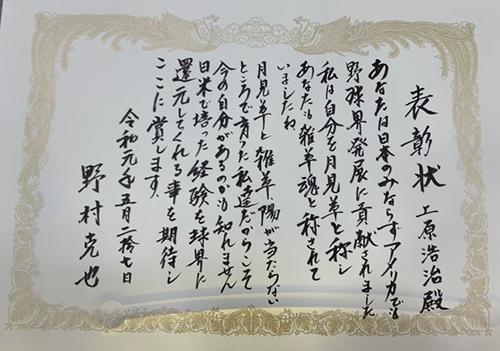 表彰状
上原浩治殿
あなたは日本のみならずアメリカでも
野球界発展に貢献されました
私は自分を月見草と称し
あなたも雑草魂と称されて
いましたね
月見草と雑草、陽が当たらない
ところで育った私達だからこそ
今の自分があるのかも知れません
日米で培った経験を球界に
還元してくれる事を期待し
ここに賞します
令和元年五月二拾七日
野村克也